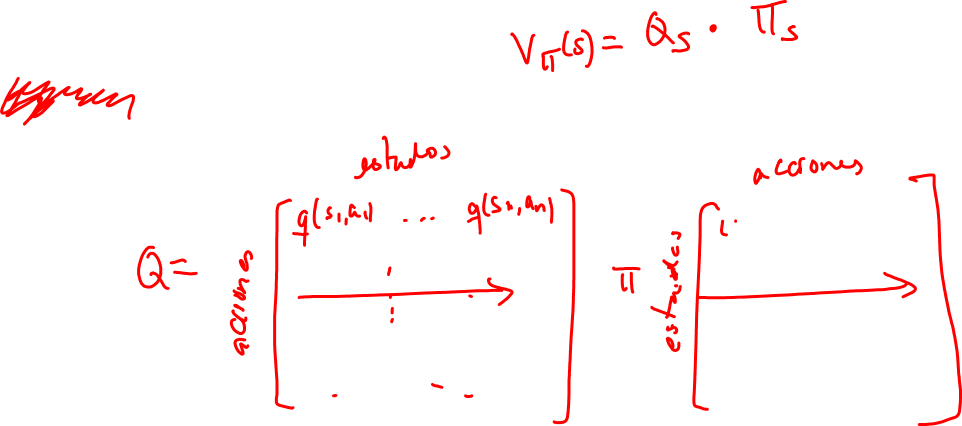 V_π(s) = Q_s · π_s
estados
acciones
q(s₁,a₁) ... q(sₙ,aₙ)
Q =
acciones
π
estados